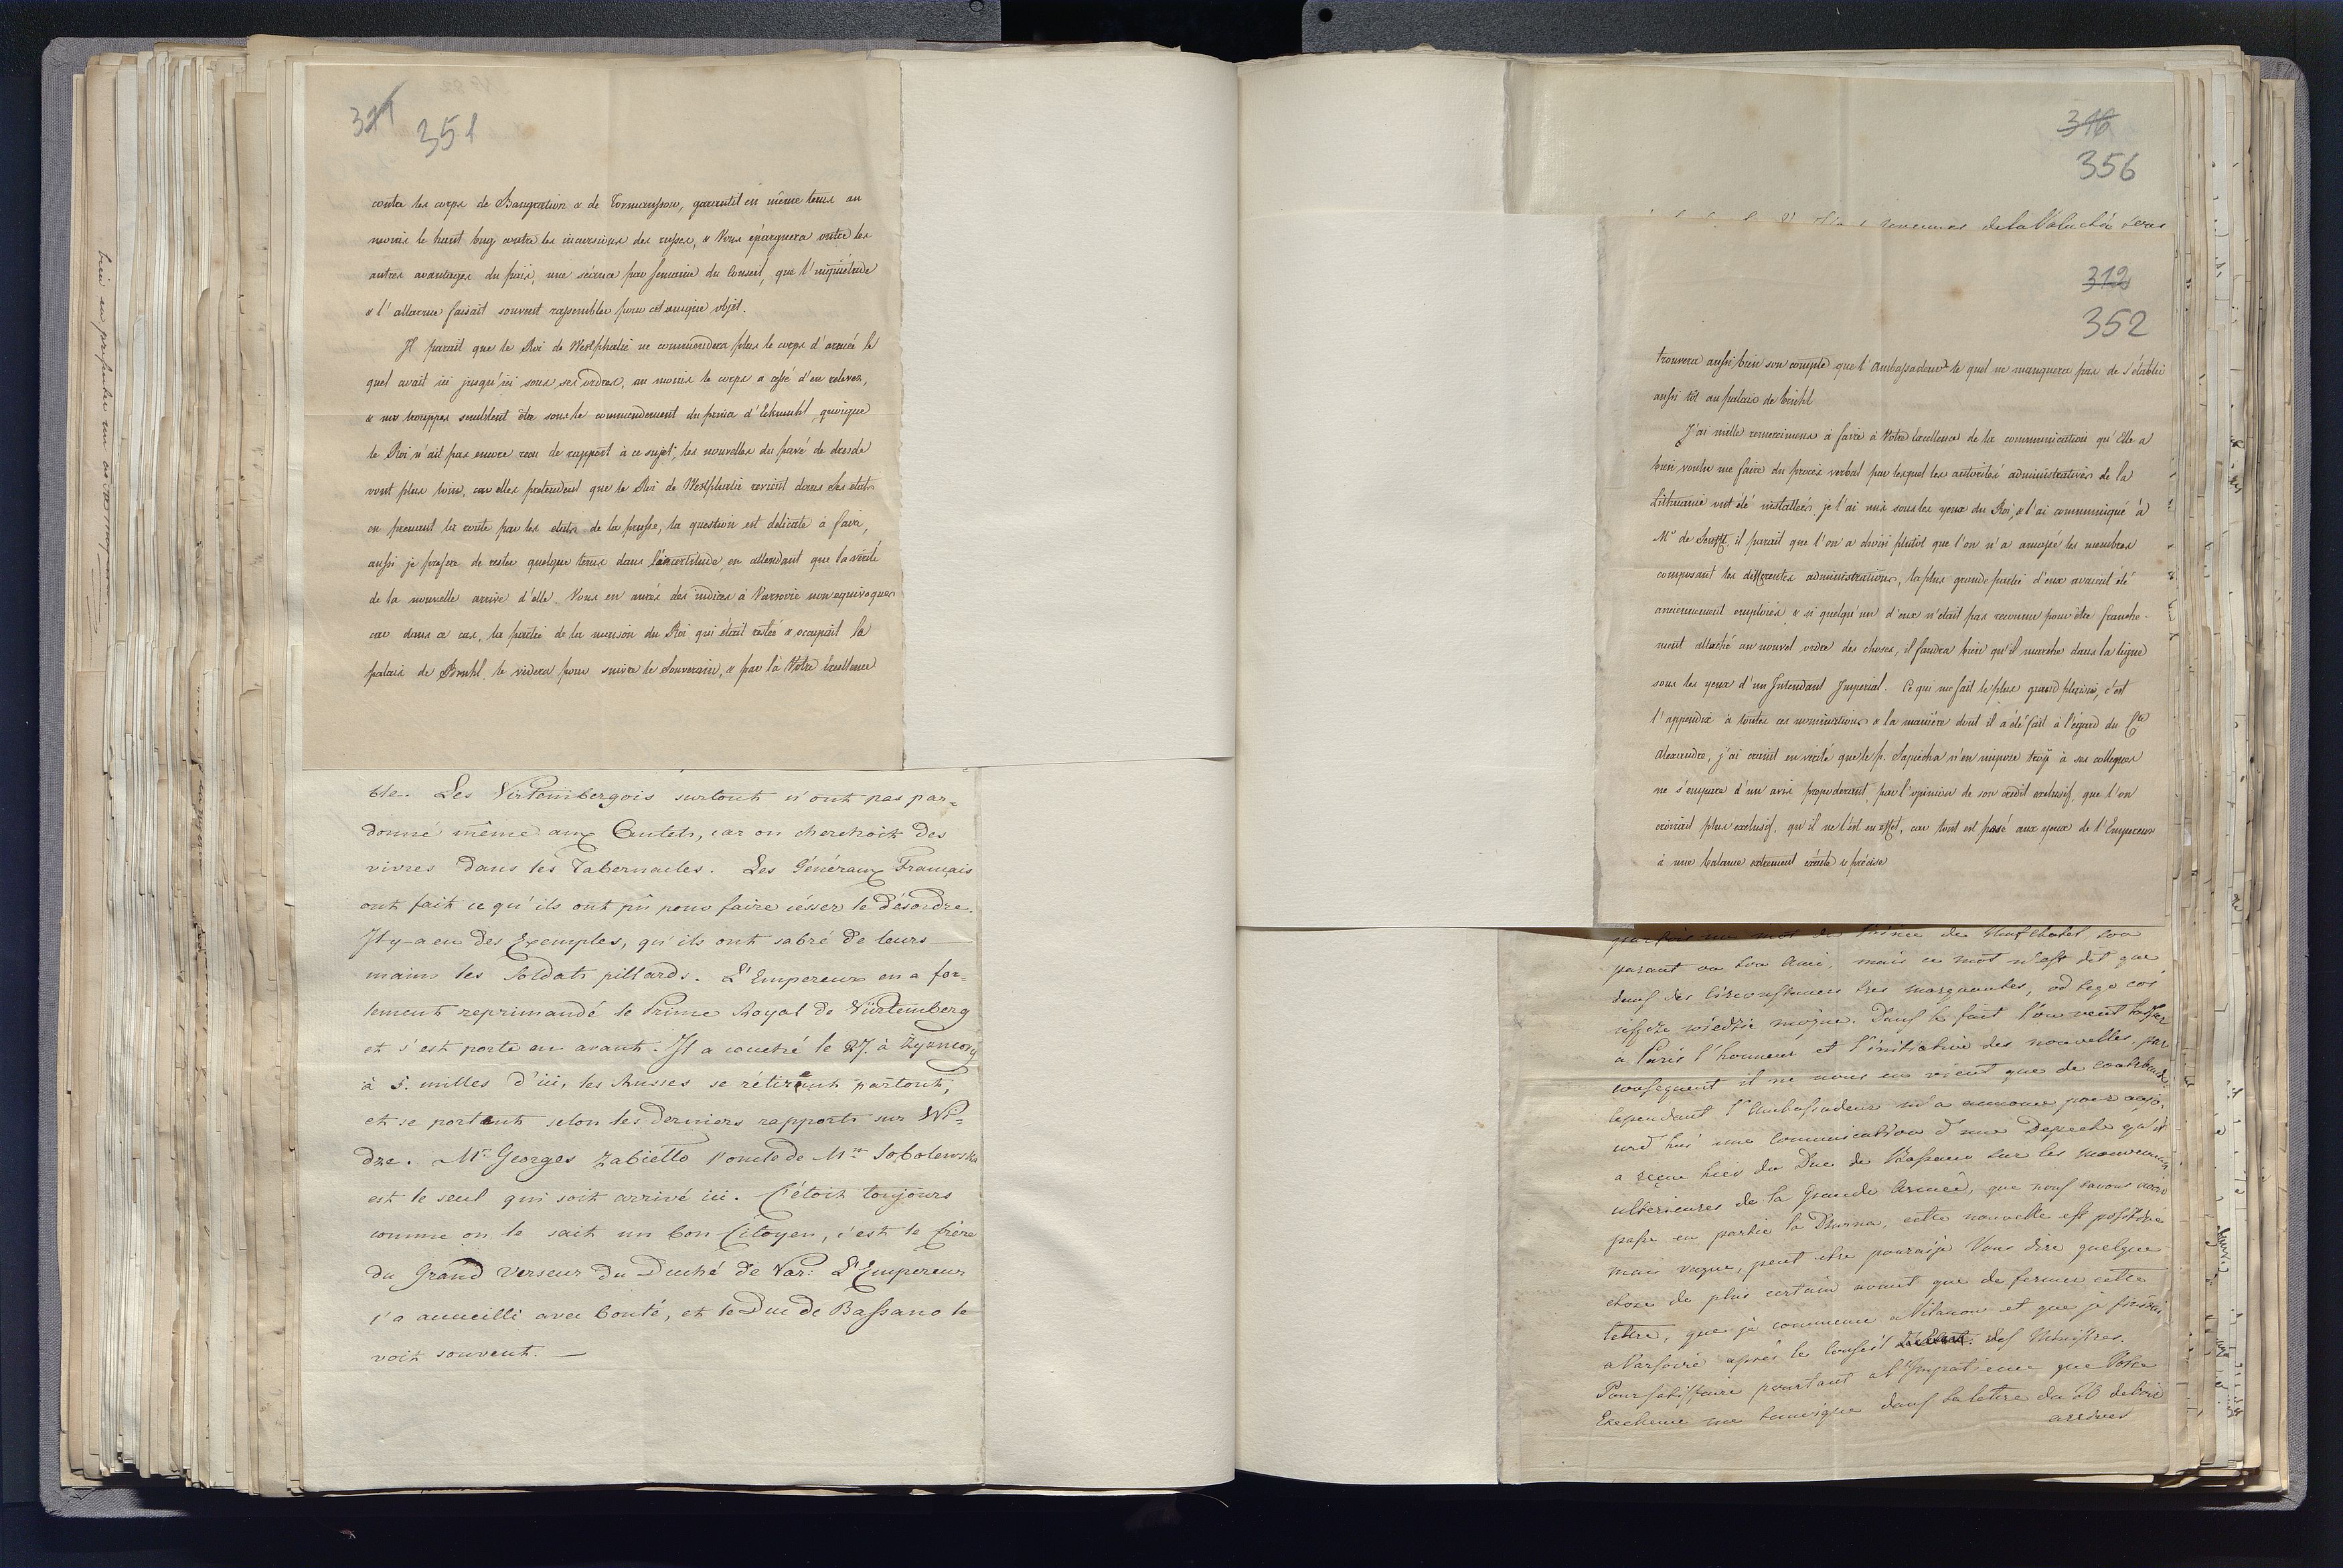 311
351
contre les corps de Bangration & de Tormansow, garantit en même tems au
moins le haut bug contre les incursions des russes, & Vous épargnera outre les
autres avantages du païs, une séance par semaine du Conseil, que l'inquiétude
& l'allarme faisait souvent rassembler pour cet unique objet.
Il parait que le Roi de Westphalie ne commendera plus le corps d'armée le
quel avait ici jusqu'ici sous ses ordres, au moins le corps a cessé d'en relever,
& nos trouppes semblent être sous le commendement du prince d'Ekmuhl, quoique
le Roi n'ait pas encore recu de rapport à ce sujet; les nouvelles du pavé de dresde
vont plus loin, car elles pretendent que le Roi de Westphalie revient dans ses etats
en prenant la route par les etats de la prusse, la question est delicate à faire,
aussi je prefere de rester quelque tems dans l'incertitude, en attendant que la verité
de la nouvelle arrive d'elle. Vous en aurés des indices à Varsovie non equivoques
car dans ce cas, la partie de la maison du Roi qui était restée & occupait le
palais de Bruhl le videra pour suivre le Souverain, & par là Votre Excellence
ble. Les Virtembergois surtout n'ont pas par=
donné même aux Autels, car on cherchoit des
vivres dans les Tabernacles. Les Généraux Français
ont fait ce qu'ils ont pû pour faire césser le désordre.
Il y-a eu des Exemples, qu'ils ont sabré de leurs
mains les Soldats pillards. L'Empereur en a for=
tement reprimandé le Prince Royal de Würtemberg
et s'est porté en avant. Il a couché le 27. à
à 5. milles d'ici, les Russes se rétirent partout,
et se portent selon les derniers rapports sur Wi=
dze. Mr. Georges Zabiello l'oncle de Mme Sobolewska
est le seul qui soit arrivé ici. C'étoit toujours
comme on le sait un bon Citoyen, c'est le frère
du Grand Verseur du Duché de Var: L'Empereur
l'a accueilli avec bonté, et le Duc de Bassano le
voit souvent. —
316
356
revenues de la Valachie
312
352
trouvera aussi bien son compte que l'ambassadeur le quel ne manquera pas de s'établir
aussi tôt au palais de brühl
J'ai mille remerciments à faire à Votre Excellence de la communication qu'Elle a
bien voulu me faire du procès verbal par lesquel les autorités administratives de la
Lithuanie ont été installées je l'ai mis sous les yeux du Roi, & l'ai communiqué à
Mr de Senfft. il parait que l'on a choisi plutôt que l'on n'a amassé les membres
composant les differentes administrations, la plus grande partie d'eux avaient été
anciennement emploiés, & si quelqu'un d'eux n'était pas reconnu pour être franche-
ment attaché au nouvel ordre des choses, il faudra bien qu'il marche dans la ligne
sous les yeux d'un Intendant Imperial. Ce qui me fait le plus grand plaisir, c'est
l'appendix à toutes ces nominations & la manière dont il a été fait à l'égard du Cte
Alexandre, j'ai craint en verité que le p. Sapiecha n'en impose trop à ses collegues
ne s'empare d'un avis preponderant, par l'opinion de son credit exclusif, que l'on
croirait plus exclusif, qu'il ne l'est en effet, car tout est pesé aux yeux de l'Empereur
à une balance extrement exacte & précise
un mot du Prince de Neufchatel son
parant ou son Ami, mais ce mot n'est dit que
dans des circonstances tres marquantes, od tego coś
więdzie można. Dans le fait l'on veut laisser
a Paris l'honneur et l'initiative des nouvelles, par
consequent il ne nous en vient que de contrebande.
Cependant l'Ambassadeur m'a annoncé pour aujo-
urd'hui une communication d'une Depeche qu'il
a reçue hier du Duc de Bassano sur les mouvemens
ulterieures de la Grande Armée, que nous savons avoir
passe en partie la Dzwina, cette nouvelle est positive
mais vague, peut etre pouraije Vous dire quelque
chose de plus certain avant que de fermer cette
lettre, que je commence a Vilanow et que je finirai
a Varsovie après le Conseil des Ministres.
Pour satisfaire pourtant a l'impatience que Votre
Excellence me temoigne dans sa lettre du 26
arrivés